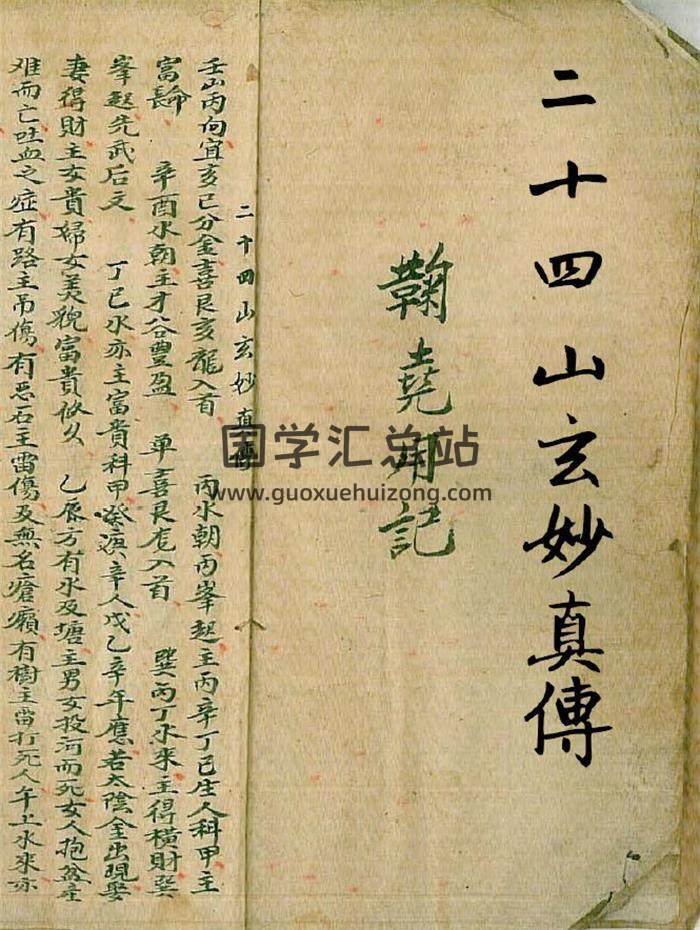 二十四山玄妙真傳
鞠堯邦記
二十四山玄妙真傳
壬山丙向宜亥巳分金喜艮亥龍入首 丙水朝丙峯起主丙辛丁巳生人科甲主
富 辛酉水朝主才谷豐盈 单喜艮龙入首 巽丙丁水來主得橫財巽
峯起先武后文 丁巳水亦主富貴科甲發演辛人戊乙辛年應若太陰金出現娶
妻得財主女貴婦女美貌富貴攸久 乙辰方有水及塘主男女投河而死女人抱盆產
难而亡吐血之症有路主吊傷有恶石主雷傷及無名瘡癩有樹主雷打死人午上水來亦
国学汇总站
www.guoxuehuizong.com